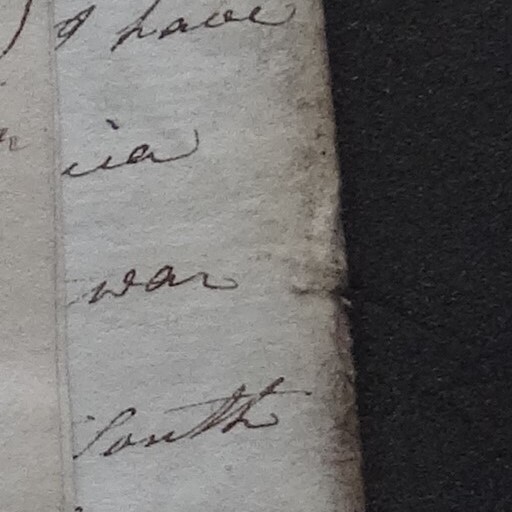 I have
ia
war
South